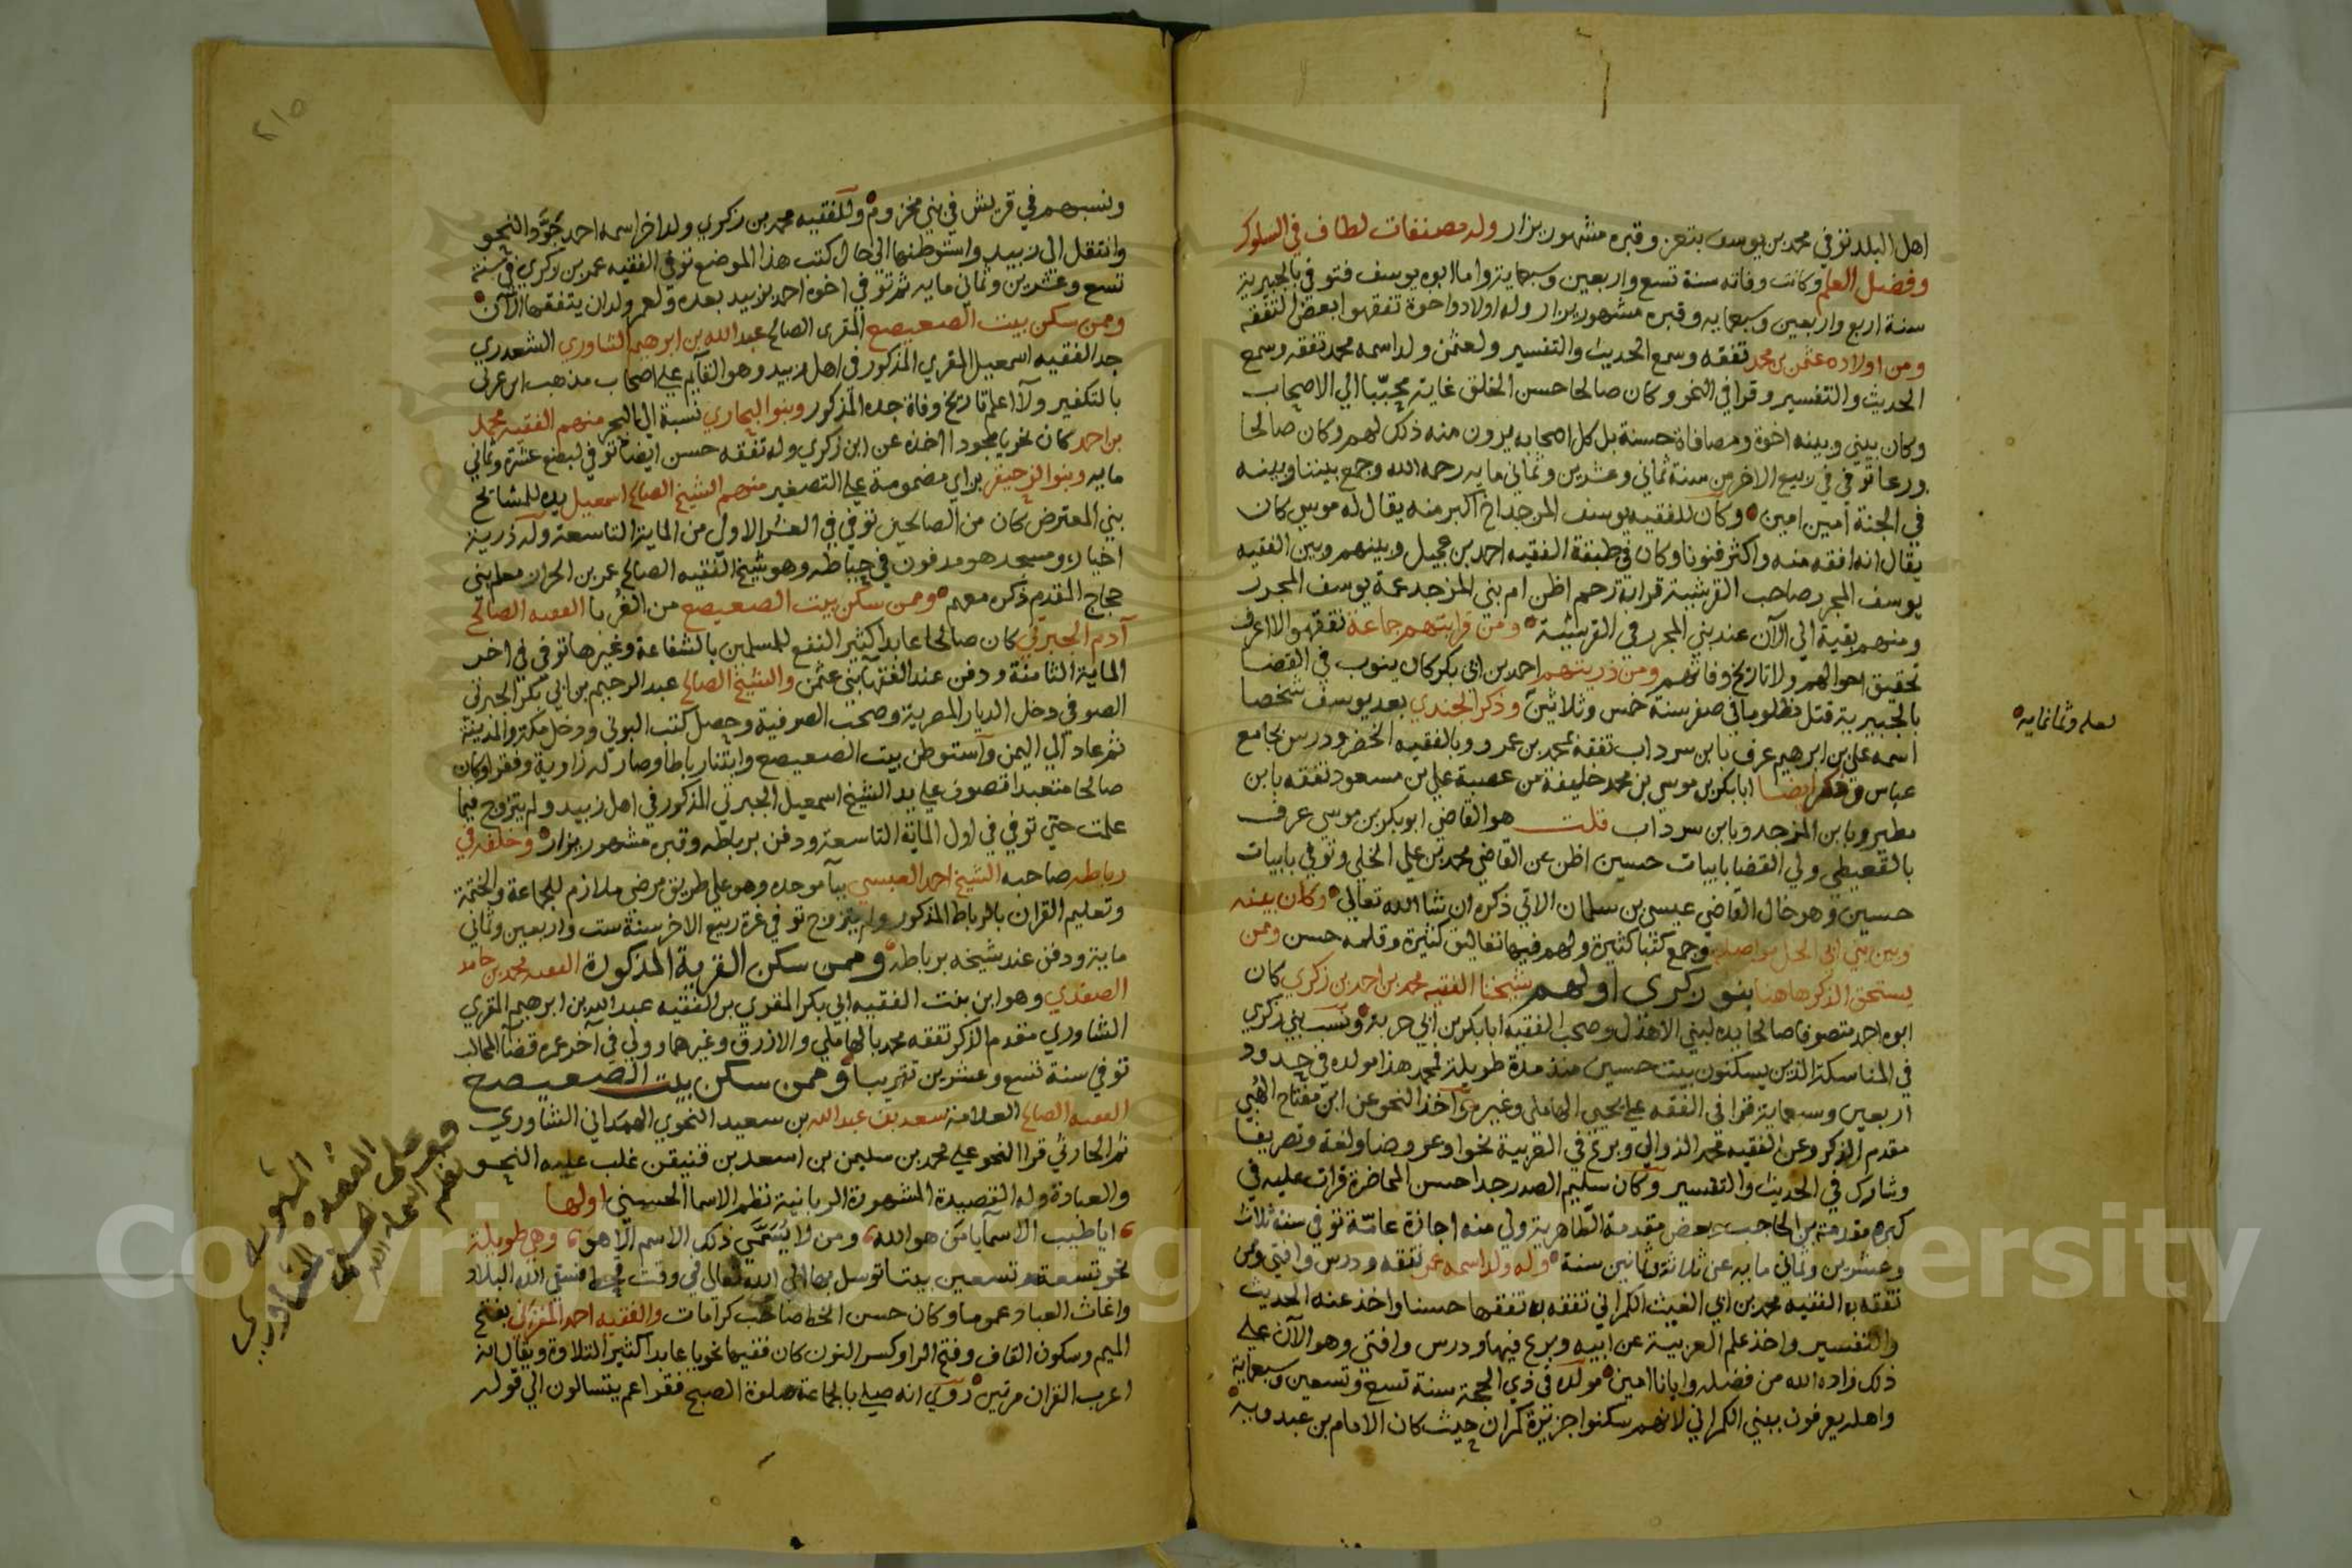 اهل البلد توفي محمد بن يوسف بتعز وقبره مشهور يزار وله مصنفات لطاف في السلوك
وفضل العلم وكانت وفاته سنة تسع واربعين وسبعماية واما ابوه يوسف فتوفي بالجبيرية
سنة اربع واربعين وسبعمايه وقبره مشهور يزار وله اولاد واخوة تفقهوا بعض التفقه
ومن اولاده عثمن بن محمد تفقه وسمع الحديث والتفسير ولعثمن ولد اسمه محمد تفقه وسمع
الحديث والتفسير وقرا في النحو وكان صالحا حسن الخلق غاية محببا الي الاصحاب
وكان بيني وبينه اخوة ومصافاة حسنة بل كل اصحابه يرون منه ذلك لهم وكان صالحا
ورعا توفي في ربيع الاخر من سنة ثماني وعشرين وثماني مايه رحمه الله وجمع بيننا وبينه
في الجنة امين امين وكان للفقيه يوسف المزجد اخ اكبر منه يقال له موسي كان
يقال انه افقه منه واكثر فنونا وكان في طبقة الفقيه احمد بن عجيل وبينهم وبين الفقيه
يوسف المجرد صاحب القرشية قرابة رحم اظن ام بني المزجد عمة يوسف المجرد
ومنهم بقية الي الآن عند بني المجرد في القرشية ومن قرابتهم جماعة تفقهوا لا اعرف
تحقيق احوالهم ولا تاريخ وفاتهم ومن ذريتهم احمد بن ابي بكر كان ينوب في القضا
بالجبيرية قتل مظلوما في صفر سنة خمس وثلاثين وذكر الجندي بعد يوسف شخصا
لعله وثمانمايه
اسمه علي بن ابرهيم عرف بابن سرداب تفقه بمحمد بن عمرو وبالفقيه الخضر ودرس بجامع
عباس وذكر ايضا ابا بكر بن موسي بن محمد خليفة من عصبة علي بن مسعود تفقه بابن
مطير وبابن المزجد وبابن سرداب قلت هو القاضي ابو بكر بن موسي عرف
بالقعيطي ولي القضا بابيات حسين اظن عن القاضي محمد بن علي الخلي وتوفي بابيات
حسين وهو خال القاضي عيسى بن سلمان الاتي ذكره ان شا الله تعالى وكان بينه
وبين بني ابي الخل مواصلة وجمع كتبا كثيرة ولهم فيها تعاليق كثيرة وقلمه حسن وممن
يستحق الذكر هاهنا بنو زكري اولهم شيخنا الفقيه محمد بن احمد بن زكري كان
ابوه احمد متصوفا صالحا يده لبني الاهدل وصحب الفقيه ابا بكر بن ابي حربة ونسب بني زكري
في المناسكة الذين يسكنون بيت حسين منذ مدة طويلة فمحمد هذا مولده في حدود
اربعين وسبعماية قرا في الفقه علي يحيى الهاملي وغيره واخذ النحو عن ابن مفتاح الهبي
مقدم الذكر وعن الفقيه محمد الذوالي وبرع في العربية نحوا وعروضا ولغة وتصريفا
وشارك في الحديث والتفسير وكان سليم الصدر جدا حسن المحاضرة قرات عليه في
كبره مقدمة بن الحاجب وبعض مقدمة الطاهرية ولي منه اجازة عامة توفي سنة ثلاث
وعشرين وثماني مايه عن ثلاثة وثمانين سنة وله ولد اسمه عمر تفقه ودرس وافتي ومن
تفقه به الفقيه محمد بن ابي الغيث الكمراني تفقه به تفقها حسنا واخذ عنه الحديث
والتفسير واخذ علم العربية عن ابيه وبرع فيها ودرس وافتي وهو الآن علي
ذلك زاده الله من فضله وايانا امين مولده في ذي الحجة سنة تسع وتسعين وسبعماية
واهله يعرفون ببني الكمراني لانهم سكنوا جزيرة كمران حيث كان الامام بن عبدويه
٢١٥
ونسبهم في قريش في بني مخزوم وللفقيه محمد بن زكري ولد اخر اسمه احمد جود النحو
وانتقل الى زبيد واستوطنها الى حال كتب هذا الموضع توفي الفقيه عمر بن زكري في سنة
تسع وعشرين وثماني مايه ثم توفي اخوه احمد بزبيد بعده ولعمر ولدان يتفقهان الآن
وممن سكن بيت الصعيصع المقرى الصالح عبد الله بن ابرهيم الشاوري الشعدري
جد الفقيه اسمعيل المقري المذكور في اهل زبيد وهو القايم علي اصحاب مذهب ابن عربي
بالتكفير ولا اعلم تاريخ وفاة جده المذكور وبنوا البحاري نسبة الي البحر منهم الفقيه محمد
بن احمد كان نحويا مجودا اخذه عن ابن زكري وله تفقه حسن ايضا توفي لبضع عشرة وثماني
مايه وبنوا الزحيفر بزاي مضمومة علي التصغير منهم الشيخ الصالح اسمعيل يده للمشايخ
بني المعترض كان من الصالحين توفي في العشر الاول من الماية التاسعة وله ذرية
اخيار ومسجد هو مدفون في حياطه وهو شيخ الفقيه الصالح عمر بن الحران معلم بني
حجاج المقدم ذكره معهم وممن سكن بيت الصعيصع من الغربا الفقيه الصالح
آدم الجبرتي كان صالحا عابدا كثير النفع للمسلمين بالشفاعة وغيرها توفي في اخر
الماية الثامنة ودفن عند الفقهآ بني عثمن والشيخ الصالح عبد الرحيم بن ابي بكر الجبرتي
الصوفي دخل الديار المصرية وصحب الصوفية وحصل كتب البوني ودخل مكة والمدينة
ثم عاد الي اليمن واستوطن بيت الصعيصع وابتنا رباطا وصار له زاوية وفقرا وكان
صالحا متعبدا تصوف علي يد الشيخ اسمعيل الجبرتي المذكور في اهل زبيد ولم يتزوج فيما
علمت حتي توفي في اول الماية التاسعة ودفن برباطه وقبره مشهور يزار وخلفه في
رباطه صاحبه الشيخ احمد العبسي وهو علي طريق مرضي ملازم للجماعة والختمة
وتعليم القران بالرباط المذكور ولم يتزوج توفي في غرة ربيع الاخر سنة ست واربعين وثماني
ماية ودفن عند شيخه برباطه وممن سكن القرية المذكورة الفقيه محمد بن حامد
الصفدي وهو ابن بنت الفقيه ابي بكر المقري بن الفقيه عبد الله بن ابرهيم المقري
الشاوري مقدم الذكر تفقه محمد بالهاملي والازرق وغيرهما وولي في آخر عمره قضآ المحالب
توفي سنة تسع وعشرين تقريبا وممن سكن بيت الصعيصع
الفقيه الصالح العلامة سعد بن عبد الله بن سعيد النحوي الهمداني الشاوري
ثم الحارثي قرا النحو علي محمد بن سليمن بن اسعد بن قنيقن غلب عليه النحو
والعبادة وله القصيدة المشهورة الربانية نظم الاسما الحسني اولها
ايا طيب الاسما يا من هو الله ومن لا يسمي ذلك الاسم الا هو وهي طويلة
نحو تسعة وتسعين بيتا توسل بها الى الله تعالى في وقت فسقي الله البلاد
واغاث العباد عموما وكان حسن الخط صاحب كرامات والفقيه احمد المقرني بفتح
الميم وسكون القاف وفتح الرا وكسر النون كان فقيها نحويا عابدا كثير التلاوة ويقال انه
اعرب القران مرتين روي انه صلي بالجماعة صلوة الصبح فقرا عم يتسالون الي قوله